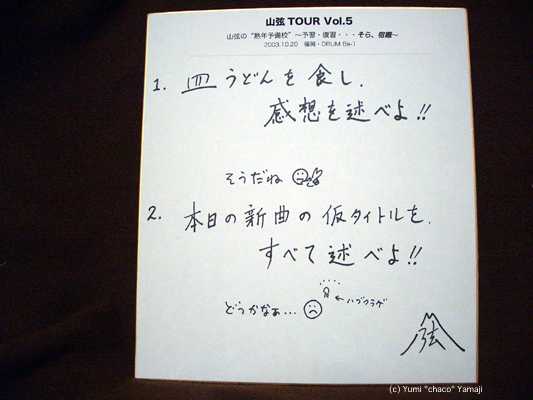 山弦 TOUR Vol.5
山弦の“熟年予備校”〜予習・復習・・・そら、宿題〜
2003.10.20 福岡・DRUM Be-1
1. 皿うどんを食し、
感想を述べよ!!
そうだね
2. 本日の新曲の仮タイトルを、
すべて述べよ!!
どうかなぁ… ←ハブクラゲ
弦
(c) Yumi "chaco" Yamaji